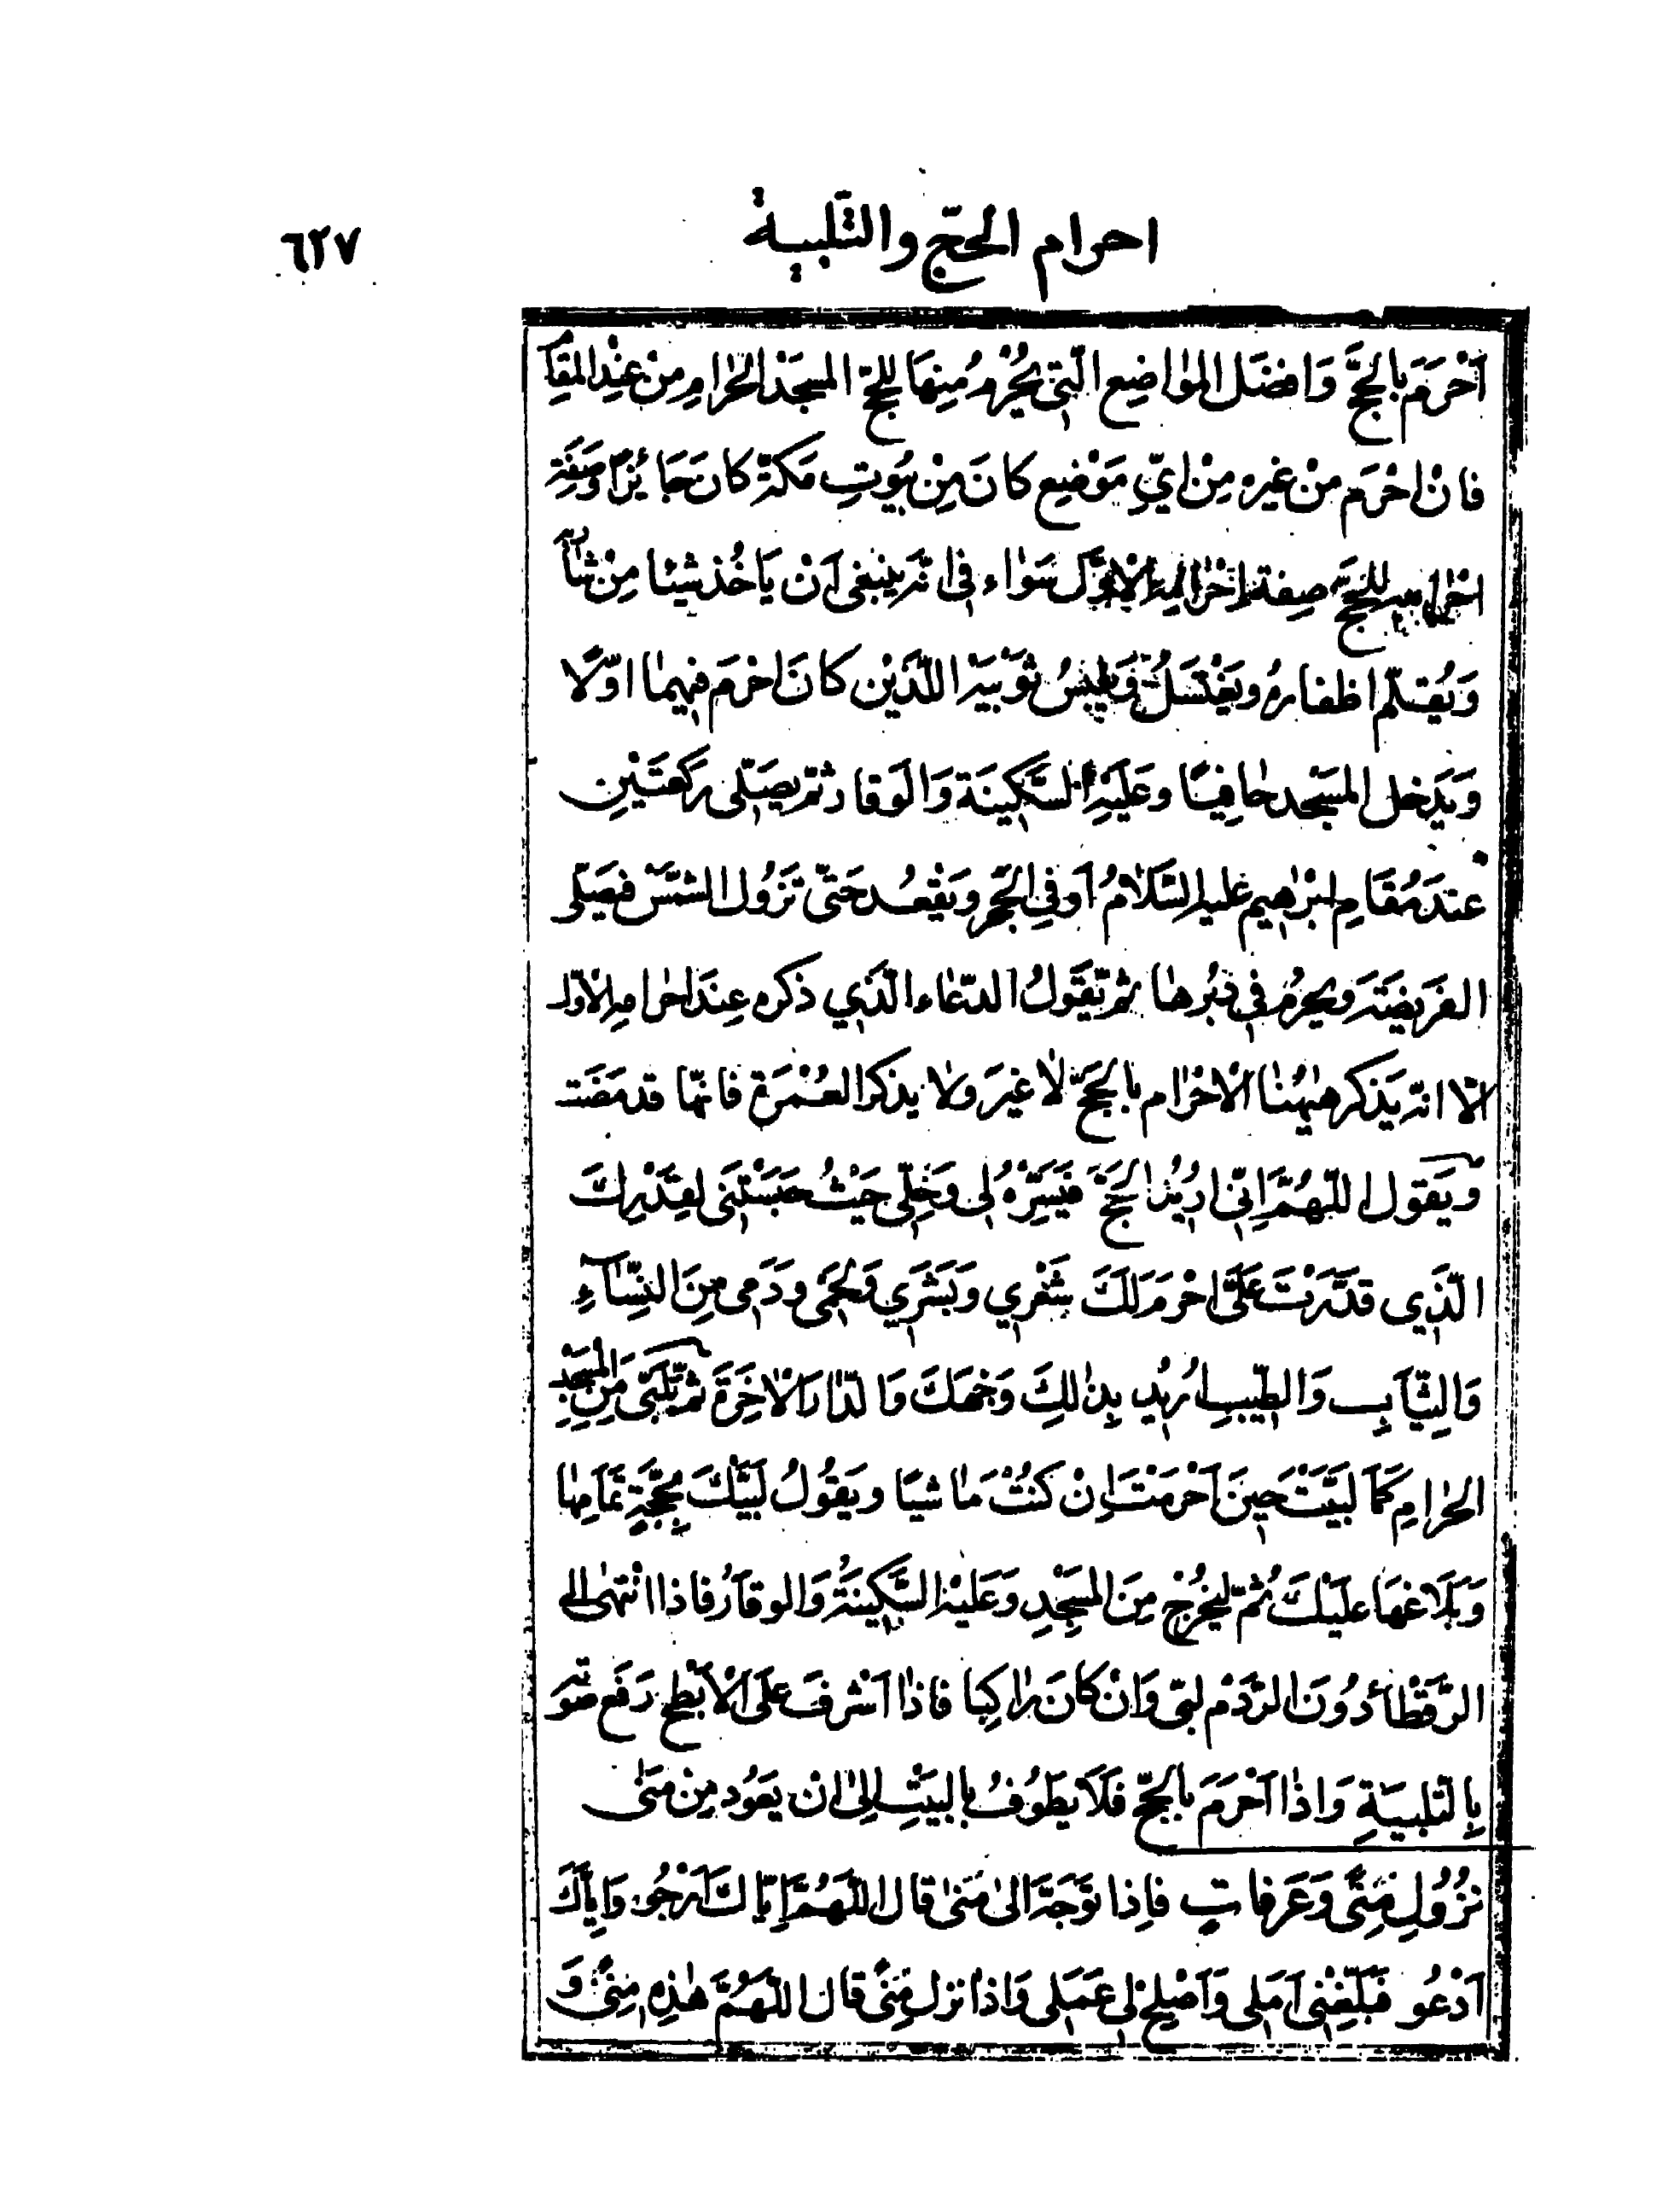 احرام الحجّ والتّلبية
٦٢٧
اَحْرَمَ بالحَجَّ وَافضَل المواضِع الّتِى يُحْرَمُ مِنهَا للحجّ المسجَد الحَرام مِنْ عِنْدِ المَقٰا
فانْ احْرَم مِنْ غيره مِنْ ايّ مَوْضِعٍ كانَ مِنْ بيُوتِ مَكّة كان جَائزًا وصَفَة
احْرامه للحَجّ صِفة اِحْرامِه الاوّل سَوٰاء فى انّه ينبغى اَنْ يَاخُذ شيئا مِنْ شٰاربه
وَيُقلّم اظفارهُ ويَغْتسلُ وَيلبسُ ثَوْبَيْه اللّذَيْن كانَ احْرَمَ فيهِمٰا اوّلًا
وَيَدخل المسَجْد حٰافِيًا وعَلَيْهِ السَّكِينَة وَالوَقار ثمّ يصَلّى رَكعَتَيْنِ
عندَ مَقَامِ اِبْرٰاهيم عليه السَّلامُ اَو فِى الحِجْر ويَقْعُد حَتّى تَزُول الشمَّسْ فيصَلّى
الفَريضَة ويُحرمُ فى دُبُرهٰا ثمّ يَقَولُ الدّعٰاء الّذِي ذكره عِندَ احرٰامِه الاوّل
الاّ انّه يَذكر هٰيهُنٰا الْاحْرٰام بالحَجّ لاٰ غيرَ ولاٰ يذكر العُمْرَة فانّها قد مَضَت
وَيَقول اللّهُمَّ اِنّى اريُد الحَجّ فَيَسِّرْهُ لى وَحُلّنى حَيْثُ حَبَسْتَنى لِقَدَرِكَ
الّذِي قَدَّرْتَ عَلَىَّ احْرَمَ لَكَ شَعْرِي وَبَشَرِي وَلَحْمى ودَمى مِنَ النِّسٰاۤءِ
وَالثِّيٰابِ وَالطّيبِ اُرِيُد بِذٰلِكَ وَجْهَكَ وَالدّٰارَ الاٰخِرَةَ ثمّ يلَبّى مِنَ المسَجْدِ
الحَرٰامِ كَمَا لَبَّيْتَ حِينَ اَحْرَمْتَ اِنْ كنُتْ مٰاشيًا ويَقُولُ لَبَّيْكَ بِحَجَّةٍ تَمَامِهٰا
وَبَلاَغهَا عَلَيْكَ ثُمّ ليَخْرُجْ مِنَ المسَجْدِ وَعَلَيْه السَّكِينَةُ وَالوقارُ فاذا انْتَهىٰ الى
الرَّقْطٰاء دُونَ الرَّدْم لبّى وَانْ كانَ رٰاكِبا فاذٰا اَشْرفَ عَلَى الاَبْطح رَفَع صَوته
بِالتّلبيَةِ وَاذٰا اَحْرَمَ بالحَجّ فَلاَ يطَوُفُ بالبَيْتِ اِلىٰ انْ يَعوُد مِنْ مِنٰى
نزُوُلِ مِنًى وَعَرَفاتٍ فاِذا توَجّهَ الىٰ مِنىٰ قال اللّٰهُمَّ اِيّاكَ اَرْجُو وَايّاكَ
اَدْعُو فَبَلّغِنْى اَمَلى وَاَصْلِحْ لى عَمَلى وَاذا نزل مِنًى قال اللّٰهُمَّ هٰذِهِ مِنىً وَ